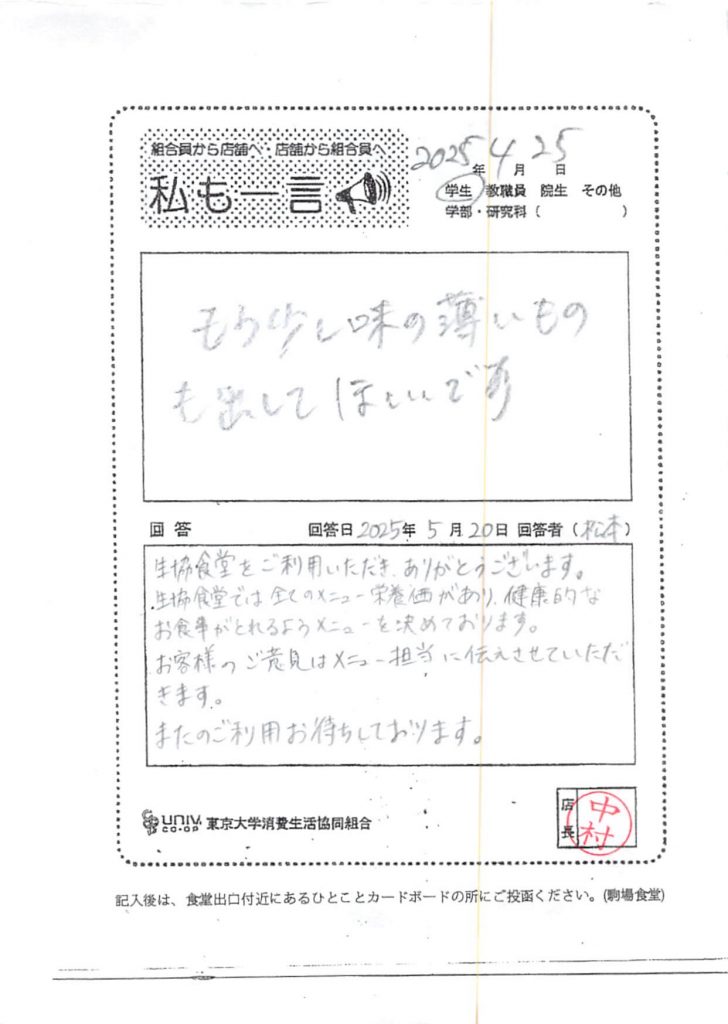 組合員から店舗へ 店舗から組合員へ
私も一言
2025年4月25日
学生 教職員 院生 その他
学部・研究科（　　　　　）
もう少し味の薄いもの
も出してほしいです
回答 回答日 2025年 5月20日 回答者（松本）
生協食堂をご利用いただき、ありがとうございます。
生協食堂では全てのメニュー栄養価があり、健康的な
お食事がとれるようメニューを決めております。
お客様のご意見はメニュー担当に伝えさせていただ
きます。
またのご利用お待ちしております。
UNIV. CO-OP 東京大学消費生活協同組合
店長 中村
記入後は、食堂出口付近にあるひとことカードボードの所にご投函ください。(駒場食堂)